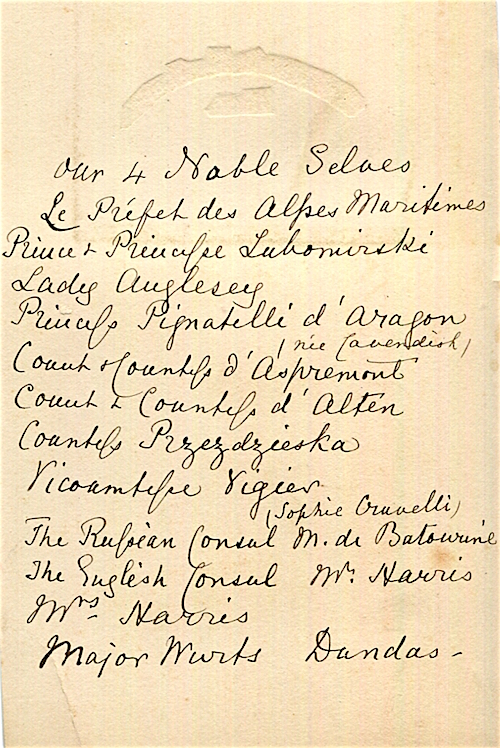 Our 4 Noble Selves
Le Préfet des Alpes Maritimes
Prince & Princesse Lubomirski
Lady Anglesey
Princess Pignatelli d'Aragon
(née Cavendish)
Count & Countess d'Aspremont
Count & Countess d'Alten
Countess Przezdzieska
Vicoumtesse Vigier
(Sophie Cruvelli)
The Russian Consul M. de Batourine
The English Consul Mr. Harris
Mrs Harris
Major Wurts Dundas -